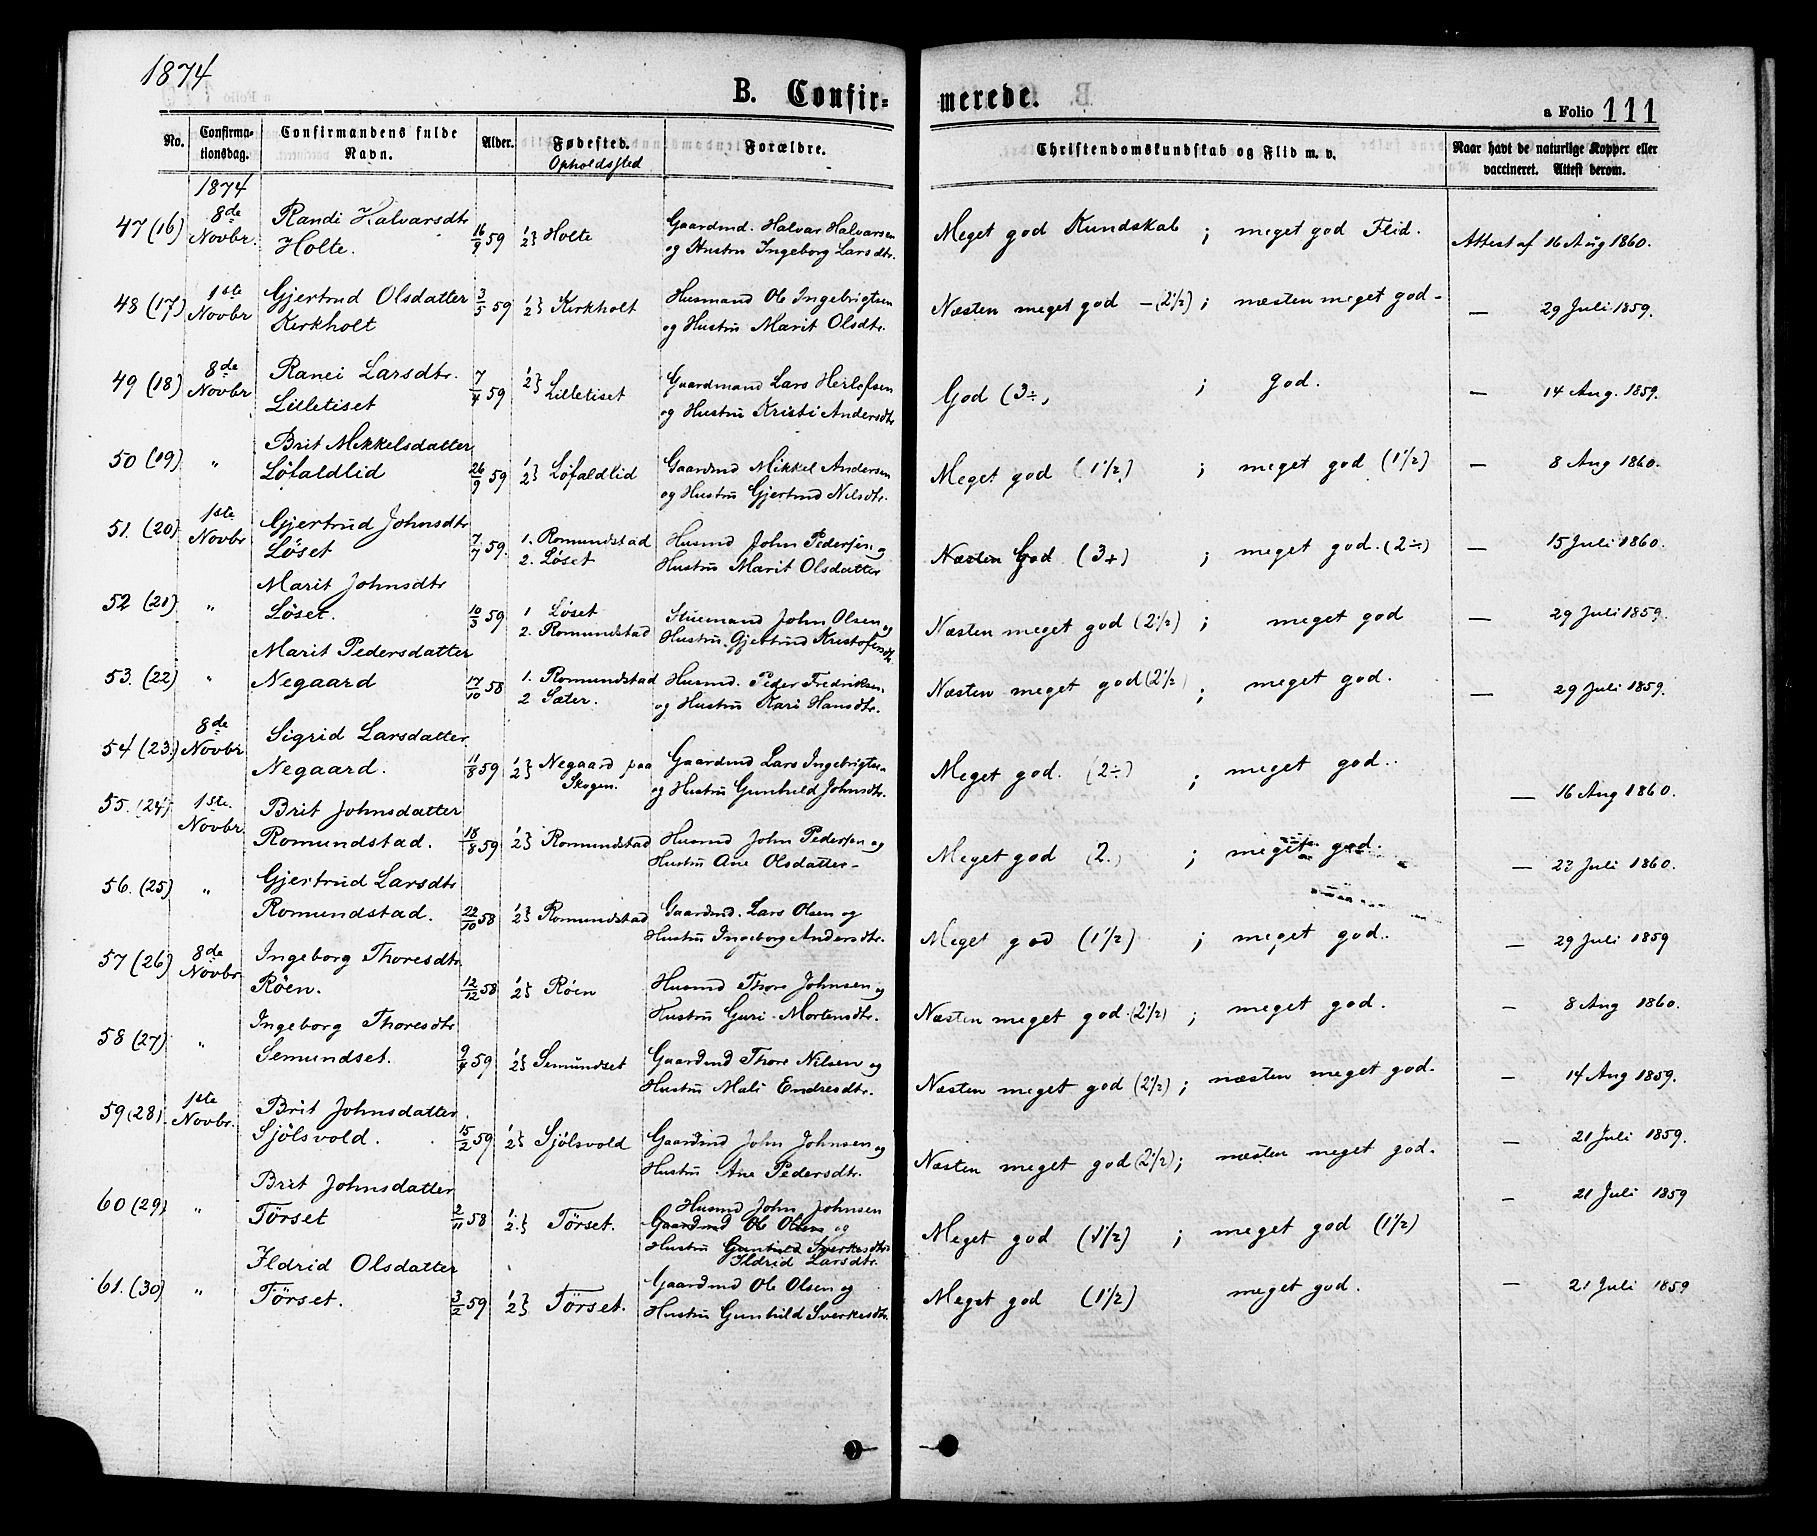 1874
B. Confir-
merede.
a Folio 111
No.
Confirma-
tionsdag.
Confirmandens fulde
Navn.
Alder.
Fødested.
Opholdssted
Forældre.
Christendomskundskab og Flid m. v.
Naar havt de naturlige Kopper eller
vaccineret. Attest derom.
1874
47 (16) 8de Novbr. Randi Halvarsdtr Holte. 16/9 59 1/2} Holte Gaardmd. Halvar Halvarsen og Hustru Ingeborg Larsdtr. Meget god Kundskab ; meget god Flid. Attest af 16 Aug 1860.
48 (17) 1ste Novbr Gjertrud Olsdatter Kirkholt 3/5 59 1/2} Kirkholt Husmand Ole Ingebrigtsen og Hustru Marit Olsdtr. Næsten meget god – (2 1/2) ; næsten meget god – — 29 Juli 1859.
49 (18) 8de Novbr Ranei Larsdtr. Lilletiset 7/4 59 1/2} Lilletiset Gaardmand Lars Herlofsen og Hustru Kristi Andersdtr God (3÷) ; god. — 14 Aug. 1859.
50 (19) " Brit Mikkelsdatter Löfaldlid 26/9 59 1/2} Löfaldlid Gaardmd Mikkel Andersen og Hustru Gjertrud Nilsdtr. Meget god (1 1/2) ; meget god (1 1/2) — 8 Aug 1860.
51. (20) 1ste Novbr Gjertrud Johnsdtr Löset 7/7 59. 1. Romundstad 2. Löset Husmd John Pedersen og Hustru Marit Olsdatter Næsten God (3+) ; meget god. (2÷) — 15 Juli 1860.
52 (21) " Marit Johnsdtr Löset. 10/3 59 1 Löset 2. Romundstad Stuemand John Olsen og Hustru Gjertrud Kristofersdtr. Næsten meget god (2 1/2) ; meget god — 29 Juli 1859.
53. (22) " Marit Pedersdatter Negaard 17/10 58 1. Romundstad 2 Sæter. Husmd. Peder Fredriksen og Hustru Kari Hansdtr. Næsten meget god (2 1/2) ; meget god. — 29 Juli 1859.
54 (23.) 8de Novbr Sigrid Larsdatter Negaard. 11/8 59 1/2} Negaard paa Skogen. Gaardmd Lars Ingebrigtsen og Hustru Gunhild Johnsdtr. Meget god. (2÷) ; meget god. — 16 Aug 1860.
55. (24) 1ste. Novbr. Brit Johnsdatter Romundstad. 18/8 59 1/2} Romundstad Husmd John Pedersen og Hustru Ane Olsdatter – Meget god (2.) ; meget god. — 23 Juli 1860.
56. (25) " Gjertrud Larsdtr Romundstad. 22/10 58 1/2} Romundstad Gaardmd. Lars Olsen og Hustru Ingeborg Andersdtr. Meget god (1 1/2) ; meget god. — 29 Juli 1859
57 (26) 8de Novbr Ingeborg Thoresdtr Röen. 12/12 58 1/2} Röen Husmd Thore Johnsen og Hustru Guri Mortensdtr. Næsten meget god (2 1/2) ; meget god. — 8 Aug 1860.
58 (27) " Ingeborg Thoresdtr Semundset. 9/4 59 1/2} Semundset Gaardmd Thore Nilsen og Hustru Mali Endresdtr. Næsten meget god (2 1/2) ; næsten meget god. — 14 Aug 1859.
59 (28) 1ste Novbr. Brit Johnsdatter. Sjölsvold. 15/2 59 1/2} Sjölsvold Gaardmd John Johnsen og Hustru Ane Pedersdtr. Næsten meget god (2 1/2) ; næsten meget god. — 21 Juli 1859.
60 (29) " Brit Johnsdatter Törset 2/11 58 1/2.} Törset. Husmd John Johnsen Gaardmd Ole Olsen og Hustru Gunhild Sverkesdtr Ildrid Larsdtr. Meget god (1 1/2) ; meget god (1 1/2) — 21 Juli 1859
61. (30) " Ildrid Olsdatter Törset. 3/2 59 1/2} Törset. Gaardmd Ole Olsen og Hustru Gunhild Sverkesdtr. Meget god (1 1/2) meget god. — 21 Juli 1859